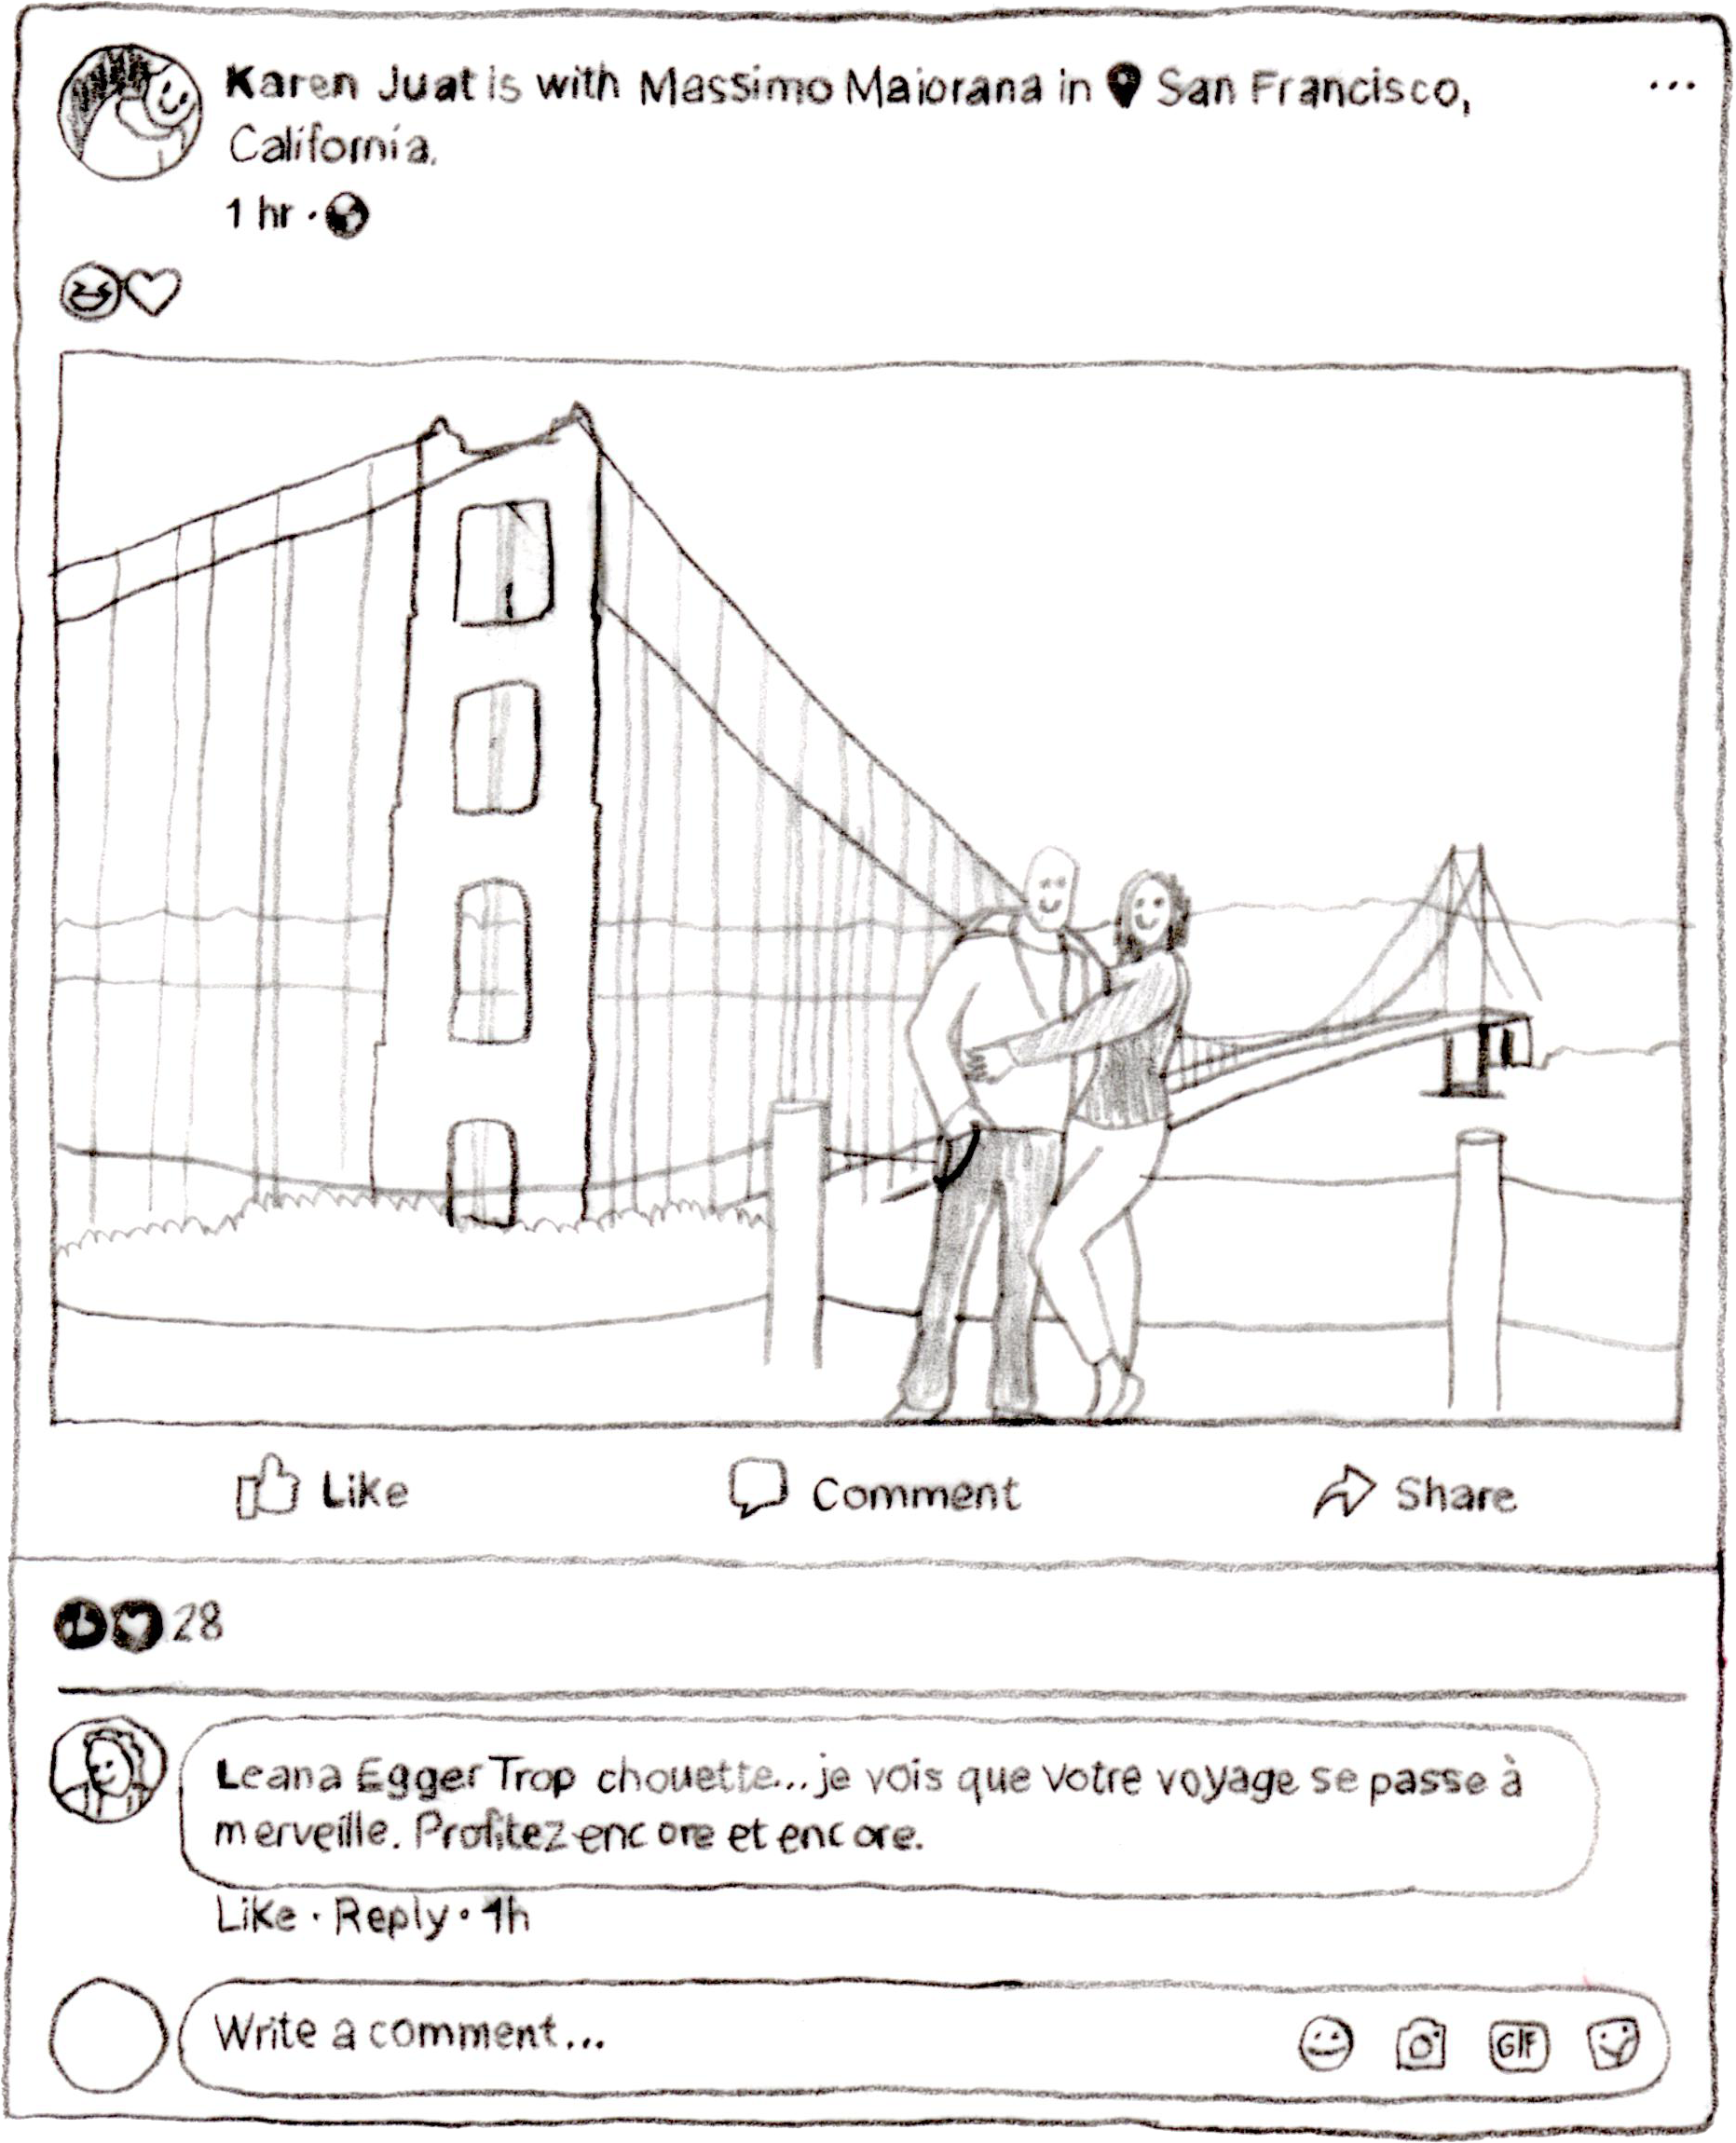 Karen Juat is with Massimo Maiorana in San Francisco,
California.
1 hr ·
...
Like
Comment
Share
28
Leana Egger Trop chouette... je vois que votre voyage se passe à
merveille. Profitez encore et encore.
Like · Reply · 1h
Write a comment...
GIF